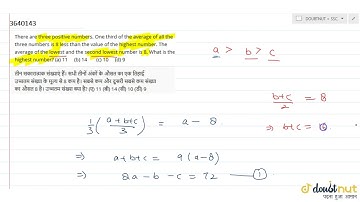 DOUBTNUT – SSC
3640143
There are three positive numbers. One third of the average of all the
three numbers is 8 less than the value of the highest number. The
average of the lowest and the second lowest number is 8. What is the
highest number? (a) 11 (b) 14 (c) 10 (d) 9
तीन सकारात्मक संख्याएं हैं। सभी तीनों अंकों के औसत का एक तिहाई
उच्चतम संख्या के मूल्य से 8 कम है। सबसे कम और दूसरी सबसे कम संख्या
का औसत 8 है। उच्चतम संख्या क्या है? (ए) 11 (बी) 14 (सी) 10 (डी) 9
a > b > c
b+c/2 = 8
1/3 (a+b+c/3) = a – 8
⇒ b+c =
⇒ a+b+c = 9(a–8)
⇒ 8a – b – c = 72 ①
doubtnut
पढ़ना हुआ आसान